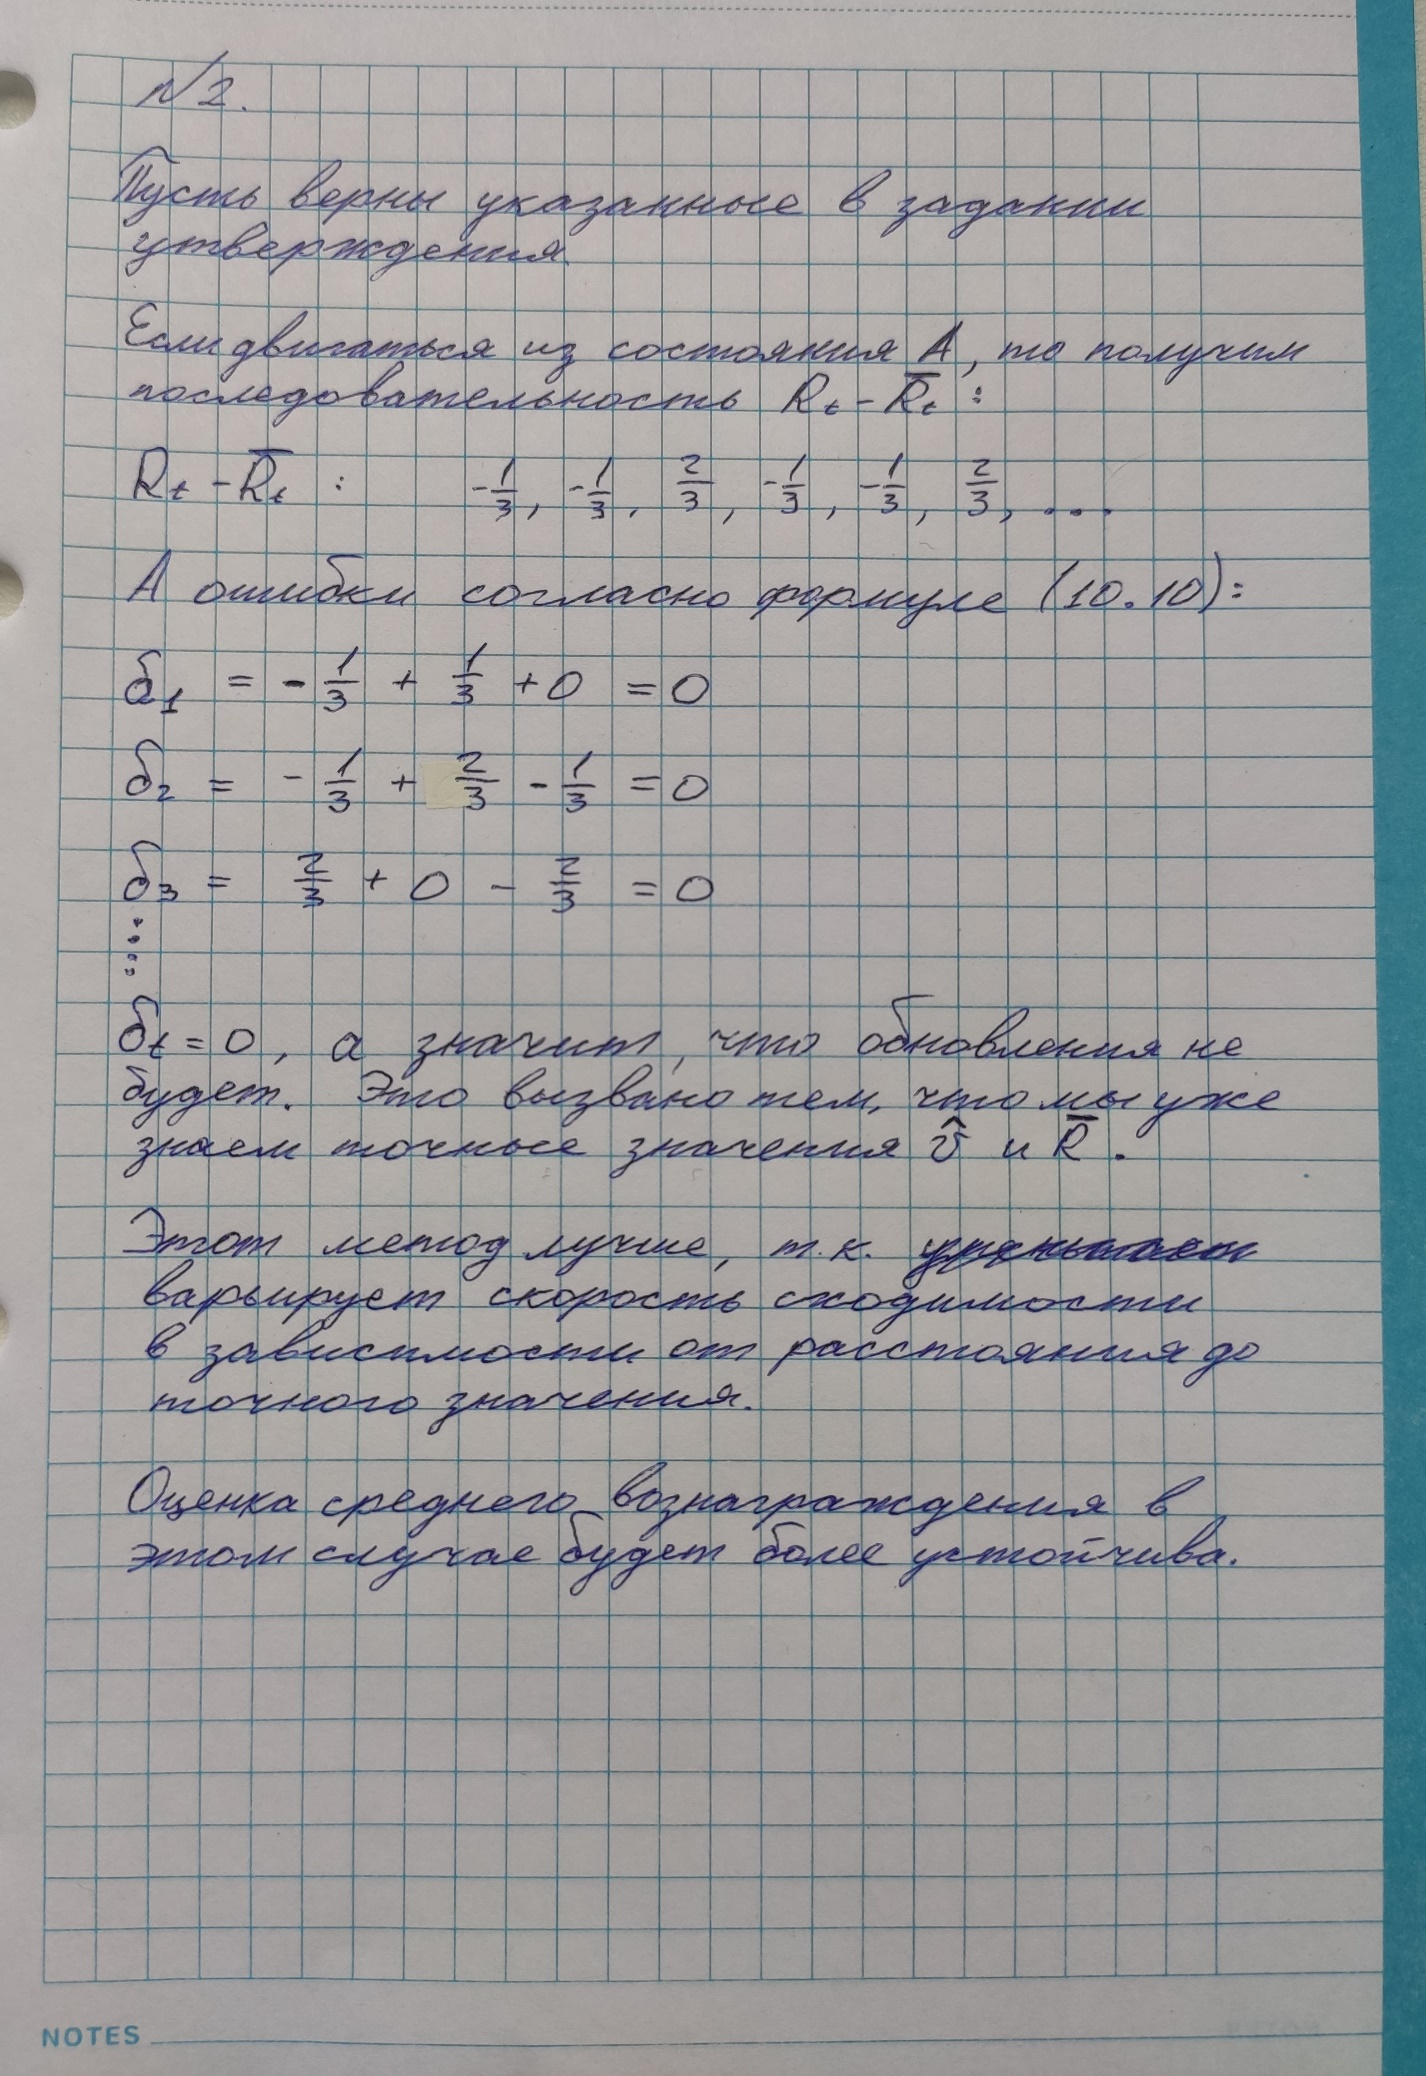 №2.
Пусть верны указанные в задании
утверждения.
Если двигаться из состояния A, то получим
последовательность Rₜ - R̅ₜ :
Rₜ - R̅ₜ : -1/3, -1/3, 2/3, -1/3, -1/3, 2/3, ...
А ошибки согласно формуле (10.10):
δ₁ = -1/3 + 1/3 + 0 = 0
δ₂ = -1/3 + 2/3 - 1/3 = 0
δ₃ = 2/3 + 0 - 2/3 = 0
⋮
δₜ = 0, а значит, что обновления не
будет. Это вызвано тем, что мы уже
знаем точные значения v̂ и R̅.
Этот метод лучше, т.к.
варьирует скорость сходимости
в зависимости от расстояния до
точного значения.
Оценка среднего вознаграждения в
этом случае будет более устойчива.
NOTES